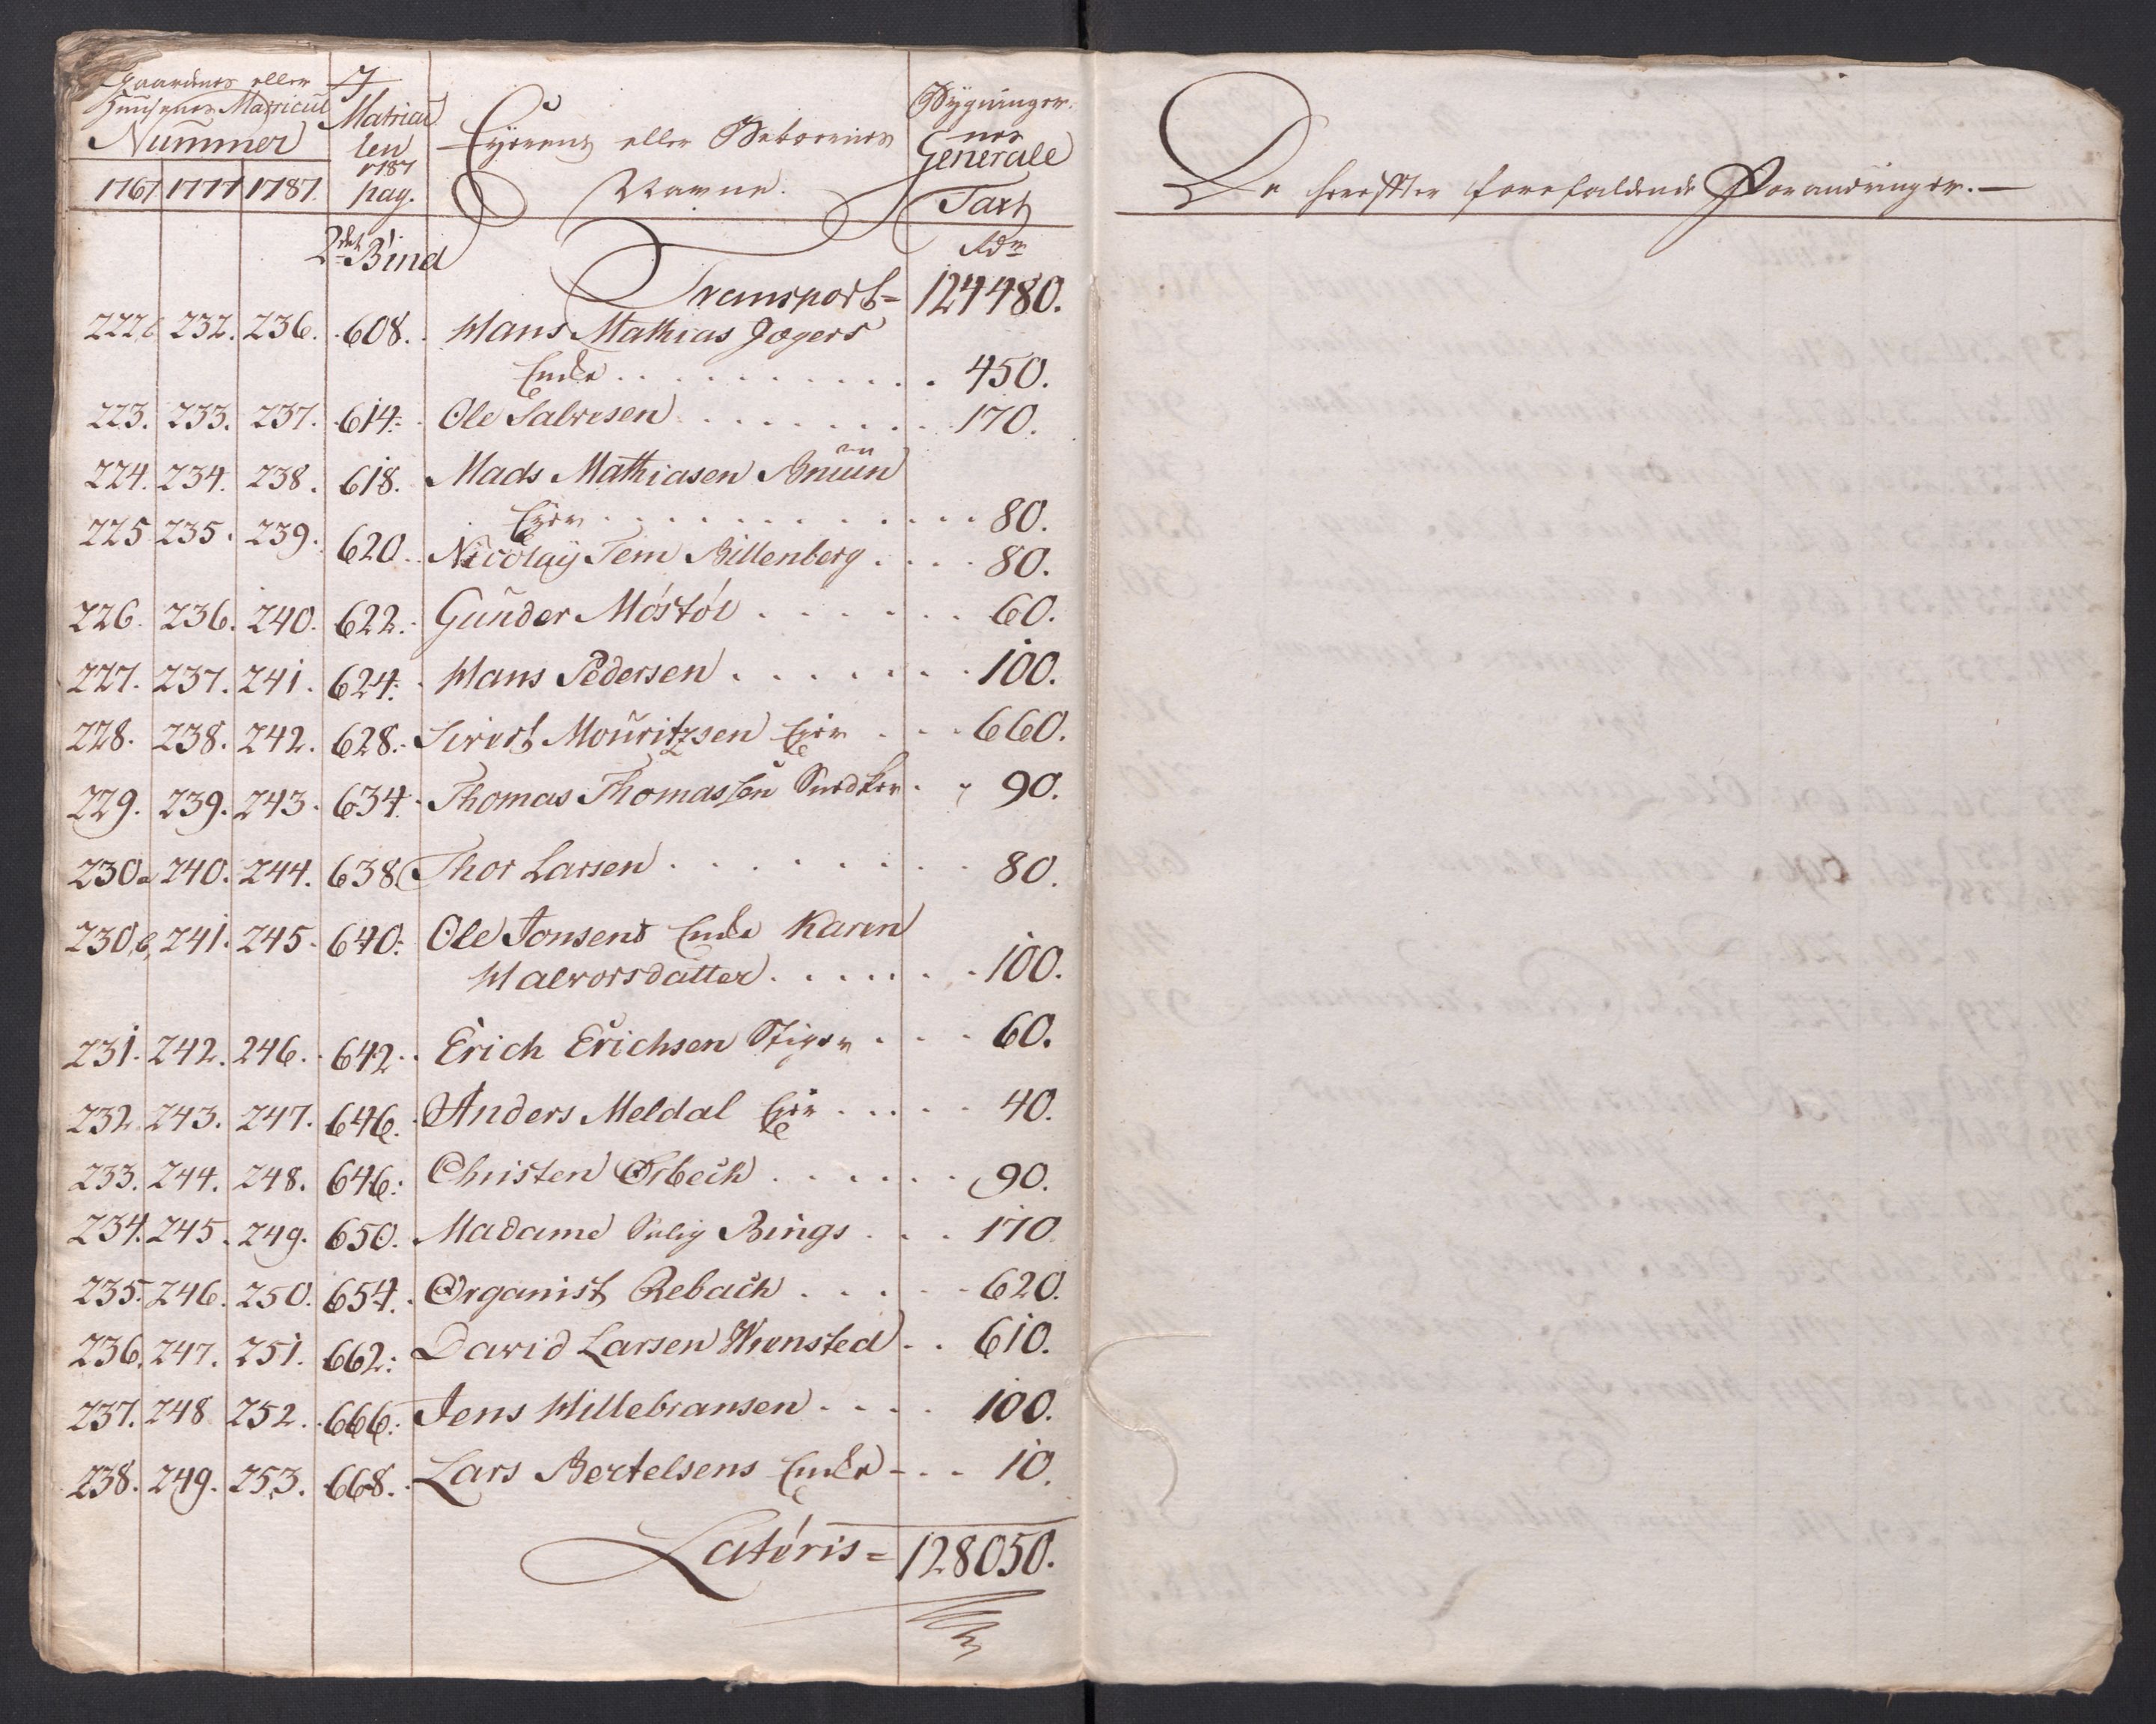 Gaardenes eller
Huusenes Matricul
Nummer
1767 1777 1787.
I
Matricu
len
1787
pag.
Eyerens eller Beboerens
Navne.
Bygninger
nes
Generale
Taxt
2det Bind
Rdr
Transport = 124480.
222 232. 236. 608. Hans Mathias Jægers
Enke . . . 450.
223. 233. 237. 614. Ole Salvesen . . . 170.
224. 234. 238. 618. Mads Mathiasen Bruun
Eier . . . 80.
225 235. 239. 620. Nicolaÿ Tem Billenberg . . . 80.
226. 236. 240. 622. Gunder Móstól . . . 60.
227. 237. 241. 624. Hans Pedersen . . . 100.
228. 238. 242. 628. Sivert Mouritzsen Eier . . . 660.
229. 239. 243. 634. Thomas Thomassen Snedker . . 90.
230a 240. 244. 638. Thor Larsen . . . 80.
230,b, 241. 245. 640. Ole Jonsens Enke Karen
Halvorsdatter . . . 100.
231. 242. 246. 642. Erich Erichsen Stiger . . . 60.
232 243. 247. 646. Anders Meldal Eier . . . 40.
233. 244. 248. 646. Christen Ørbech . . . 90.
234. 245. 249. 650. Madame Salig Bings . . . 170
235. 246. 250. 654. Organist Rebach . . . 620.
236. 247. 251. 662. David Larsen Wiensted . . 610.
237. 248 252. 666. Jens Hillebransen . . . 100.
238. 249. 253. 668. Lars Bertelsens Enke . . . 10.
Latéris = 128050.
De herefter forefaldende Forandringer. —